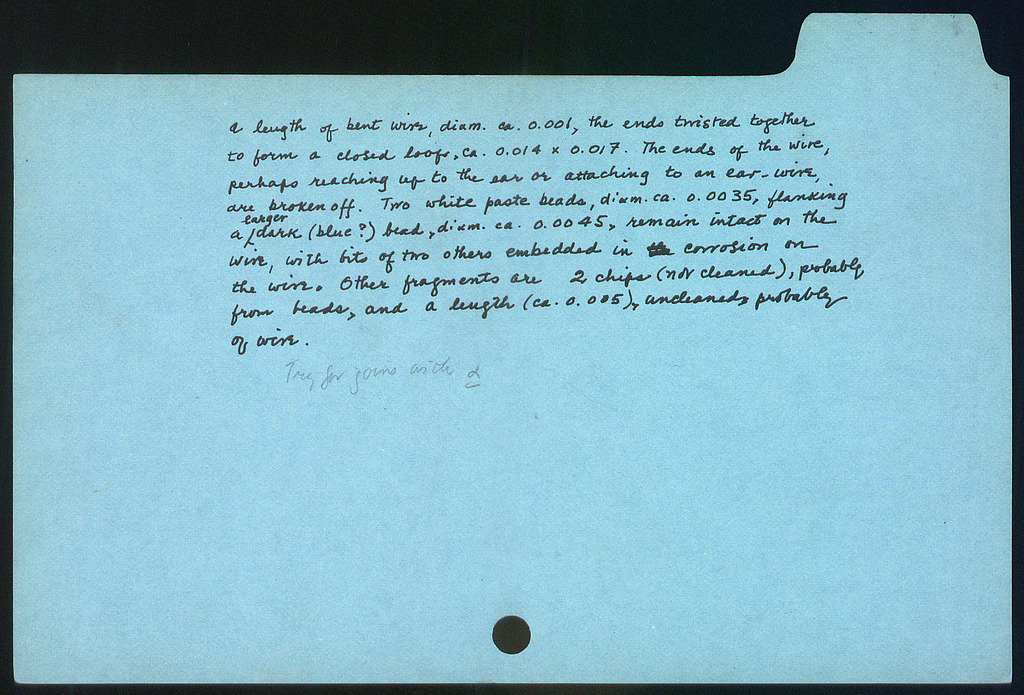 a length of bent wire, diam. ca. 0.001, the ends twisted together
to form a closed loop, ca. 0.014 x 0.017. The ends of the wire,
perhaps reaching up to the ear or attaching to an ear-wire,
are broken off. Two white paste beads, diam. ca. 0.0035, flanking
a larger dark (blue?) bead, diam. ca. 0.0045, remain intact on the
wire, with bits of two others embedded in corrosion on
the wire. Other fragments are 2 chips (not cleaned), probably
from beads, and a length (ca. 0.005), uncleaned, probably
of wire.
Try for joins with d